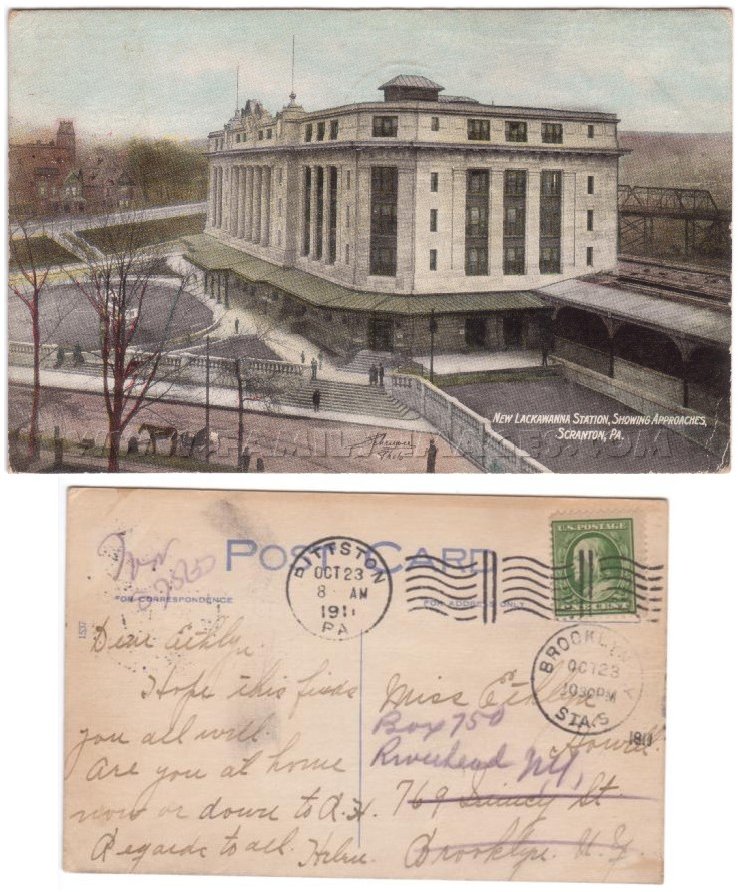 New Lackawanna Station, Showing Approaches,
Scranton, Pa.
Post Card
FOR CORRESPONDENCE
FOR ADDRESS ONLY
1537
PITTSTON
OCT 23
8 AM
1911
PA
U.S. POSTAGE
ONE CENT
BROOKLYN
OCT 23
1030PM
STA.S
1911
Dear Eithlyn.
Hope this finds
you all well.
Are you at home
now or down to A.H.
Regards to all. Helen.
Miss
Howell.
Box 750
Riverhead NY,
769 Quincy St.
Brooklyn. N.Y.